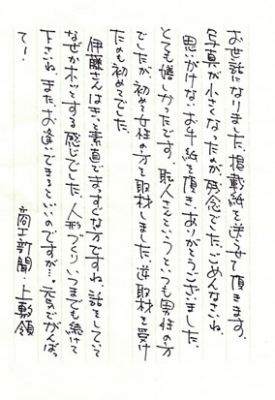 お世話になりました。掲載紙を送らせて頂きます。
写真が小さくなったが残念でした。ごめんなさいね。
思いがけないお手紙を頂きありがとうございました。
とても嬉しかったです。職人さんというといつも男性の方
でしたが、初めて女性の方を取材しました。逆取材を受け
たのも初めてでした。
伊藤さんはき素直でまっすぐな方ですね。話をしていて
なぜかホッとする感じでした。人形づくりいつまでも続けて
下さいね。またお逢いできるといいのですが…。元気でがんばっ
て！
商工新聞・上